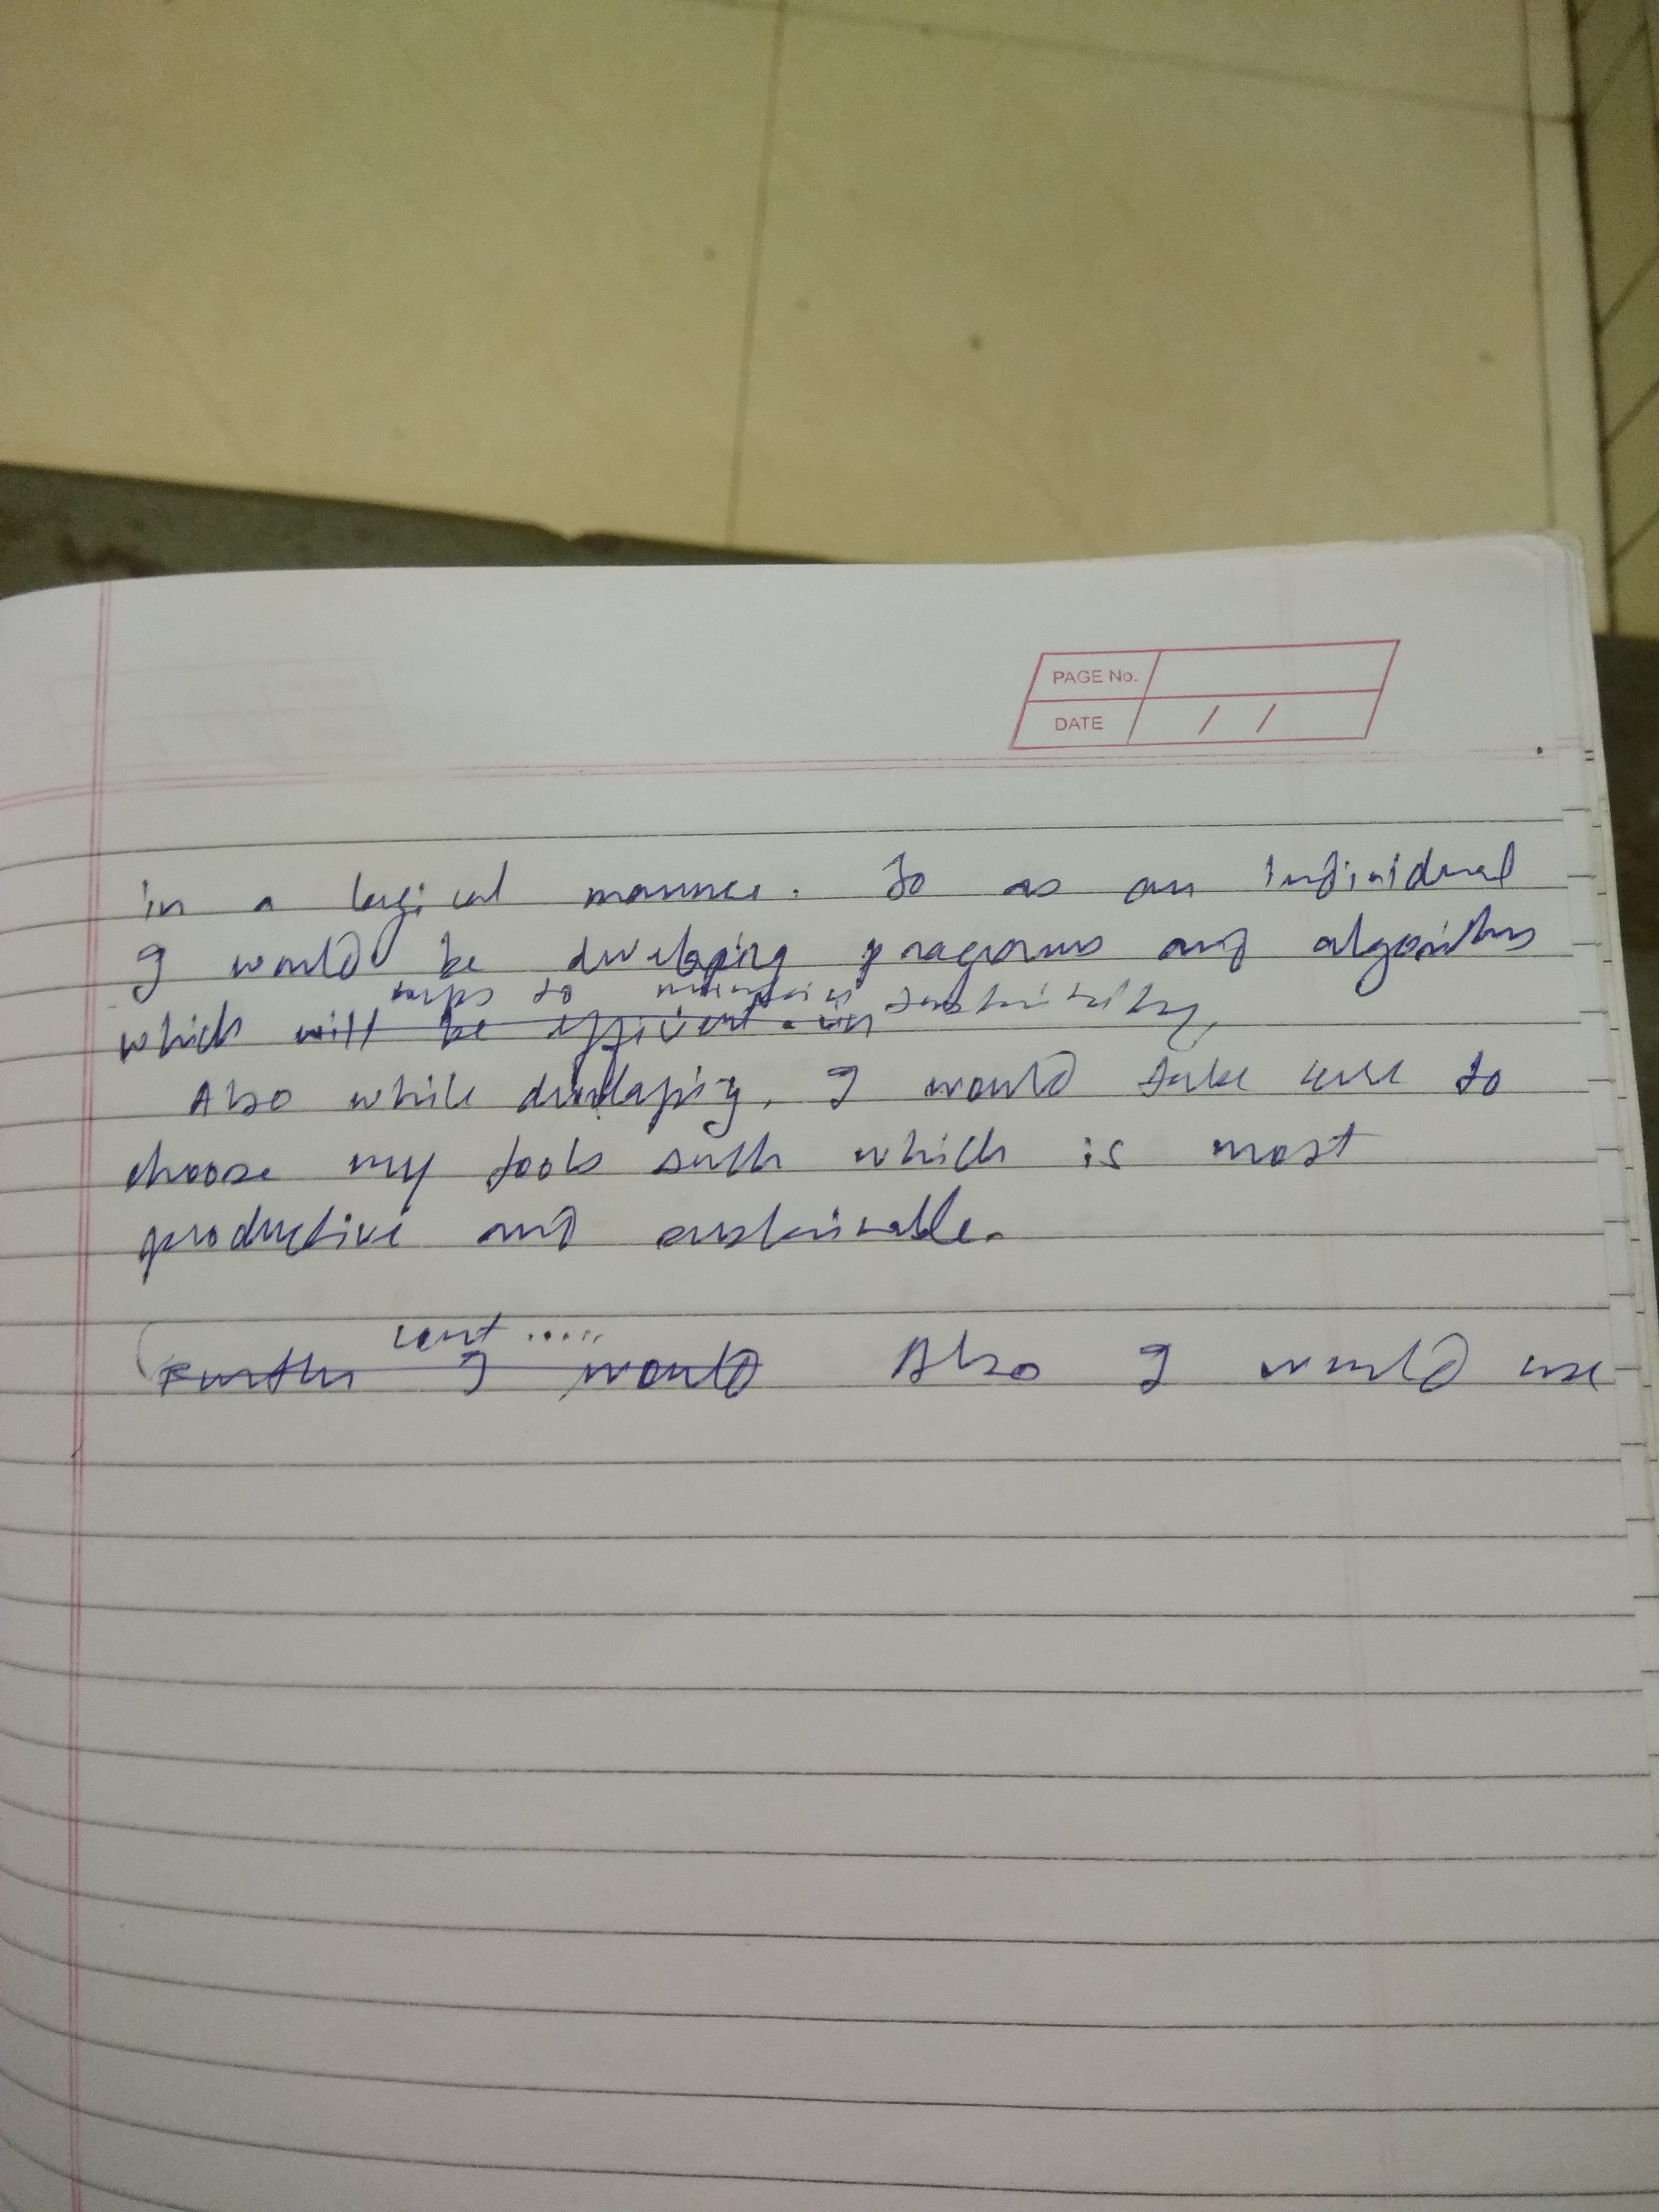 PAGE No.
DATE / /
in a logical manner. So as an individual
I would be developing programs and algorithms
helps to maintain sustainability,
which will be efficient in
Also while developing, I would take care to
choose my tools such which is most
productive and sustainable.
cont .....
Further I would Also I would use